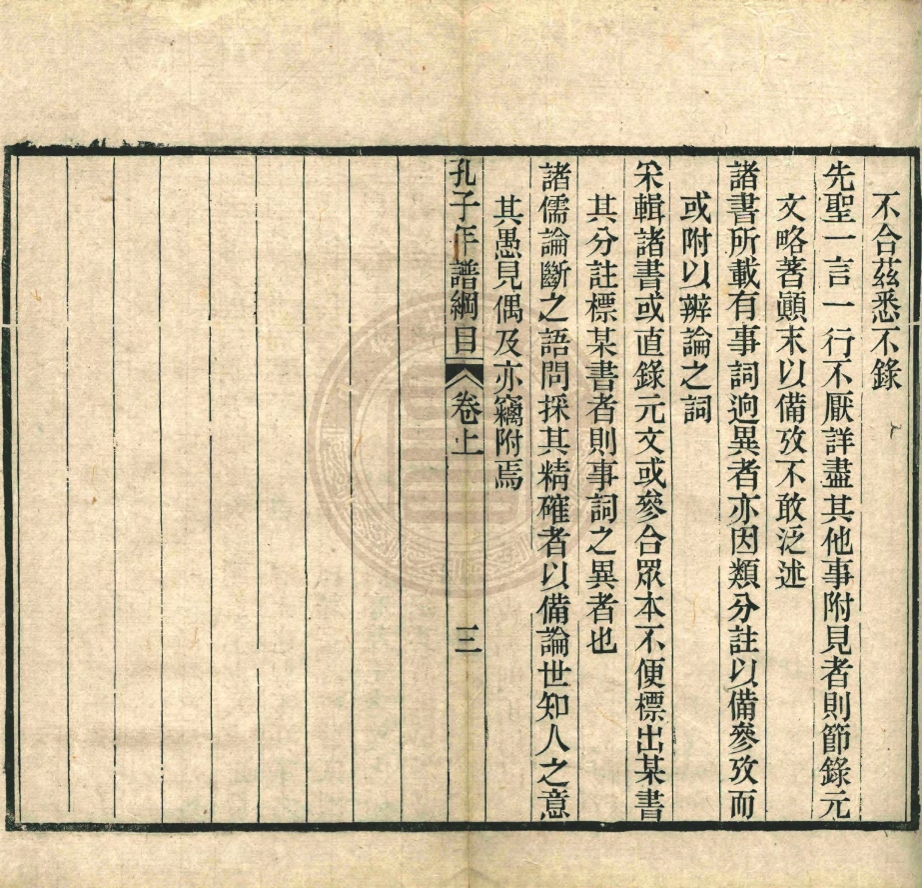 不合茲悉不錄
先聖一言一行不厭詳盡其他事附見者則節錄元
文略著顚末以備攷不敢泛述
諸書所載有事詞逈異者亦因類分註以備參攷而
或附以辨論之詞
采輯諸書或直錄元文或參合眾本不便標出某書
其分註標某書者則事詞之異者也
諸儒論斷之語間採其精確者以備論世知人之意
其愚見偶及亦竊附焉
孔子年譜綱目 卷上 三